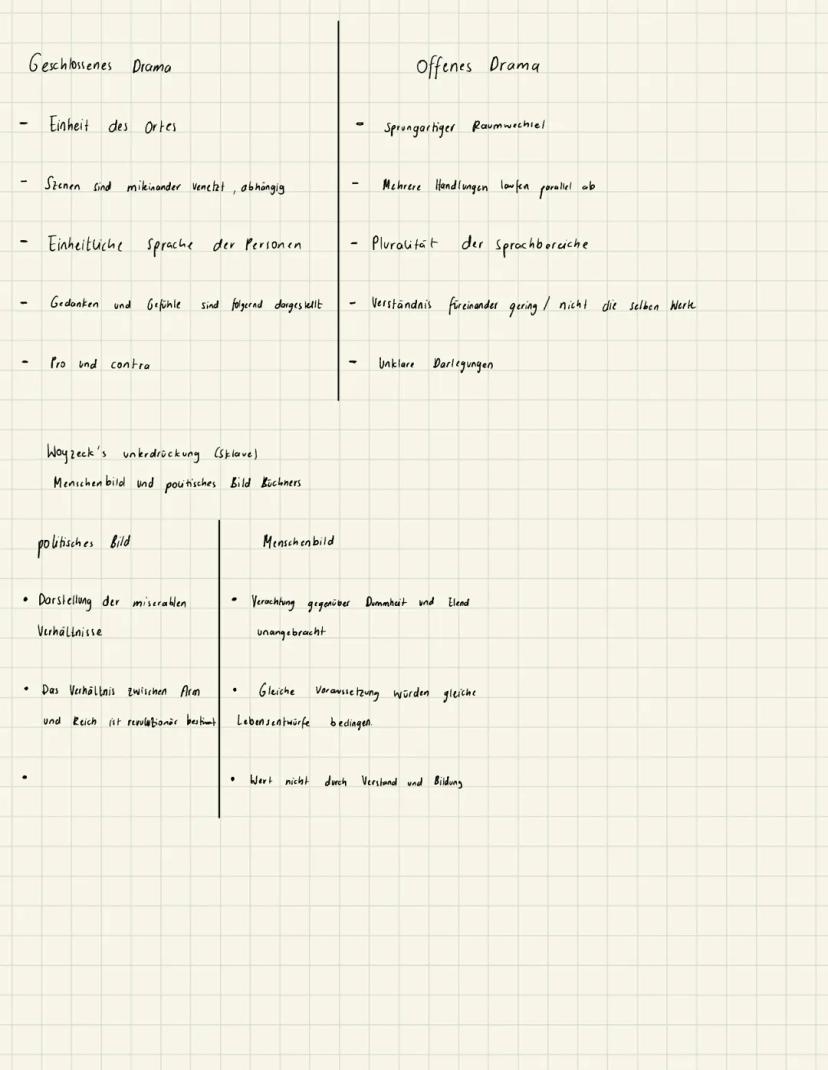 Geschlossenes Drama
- Einheit des Ortes
- Szenen sind miteinander venetzt, abhängig
- Einheitliche Sprache der Personen
- Gedanken und Gefühle sind folgernd dargestellt
- Pro und contra
Offenes Drama
- Sprungartiger Raumwechsel
- Mehrere Handlungen laufen parallel ab
- Pluralität der Sprachbereiche
- Verständnis füreinander gering / nicht die selben Werte
- Unklare Darlegungen
Woyzeck's unterdrückung (Sklave)
Menschenbild und politisches Bild Büchners
politisches Bild
• Darstellung der miserablen
Verhältnisse
• Das Verhältnis zwischen Arm
und Reich ist revolutionär bestimt
•
Menschenbild
• Verachtung gegenüber Dummheit und Elend
unangebracht
• Gleiche Voraussetzung würden gleiche
Lebensentwürfe bedingen.
• Wert nicht durch Verstand und Bildung